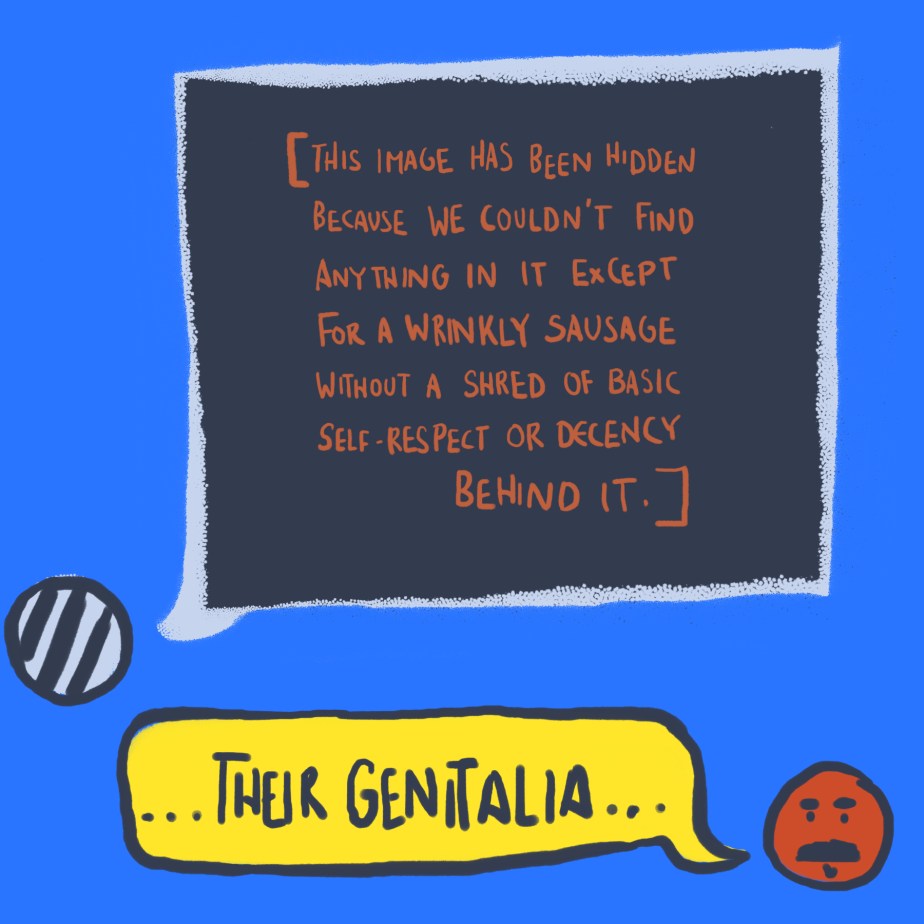 [THIS IMAGE HAS BEEN HIDDEN
BECAUSE WE COULDN'T FIND
ANYTHING IN IT EXCEPT
FOR A WRINKLY SAUSAGE
WITHOUT A SHRED OF BASIC
SELF-RESPECT OR DECENCY
BEHIND IT.]
...THEIR GENITALIA...